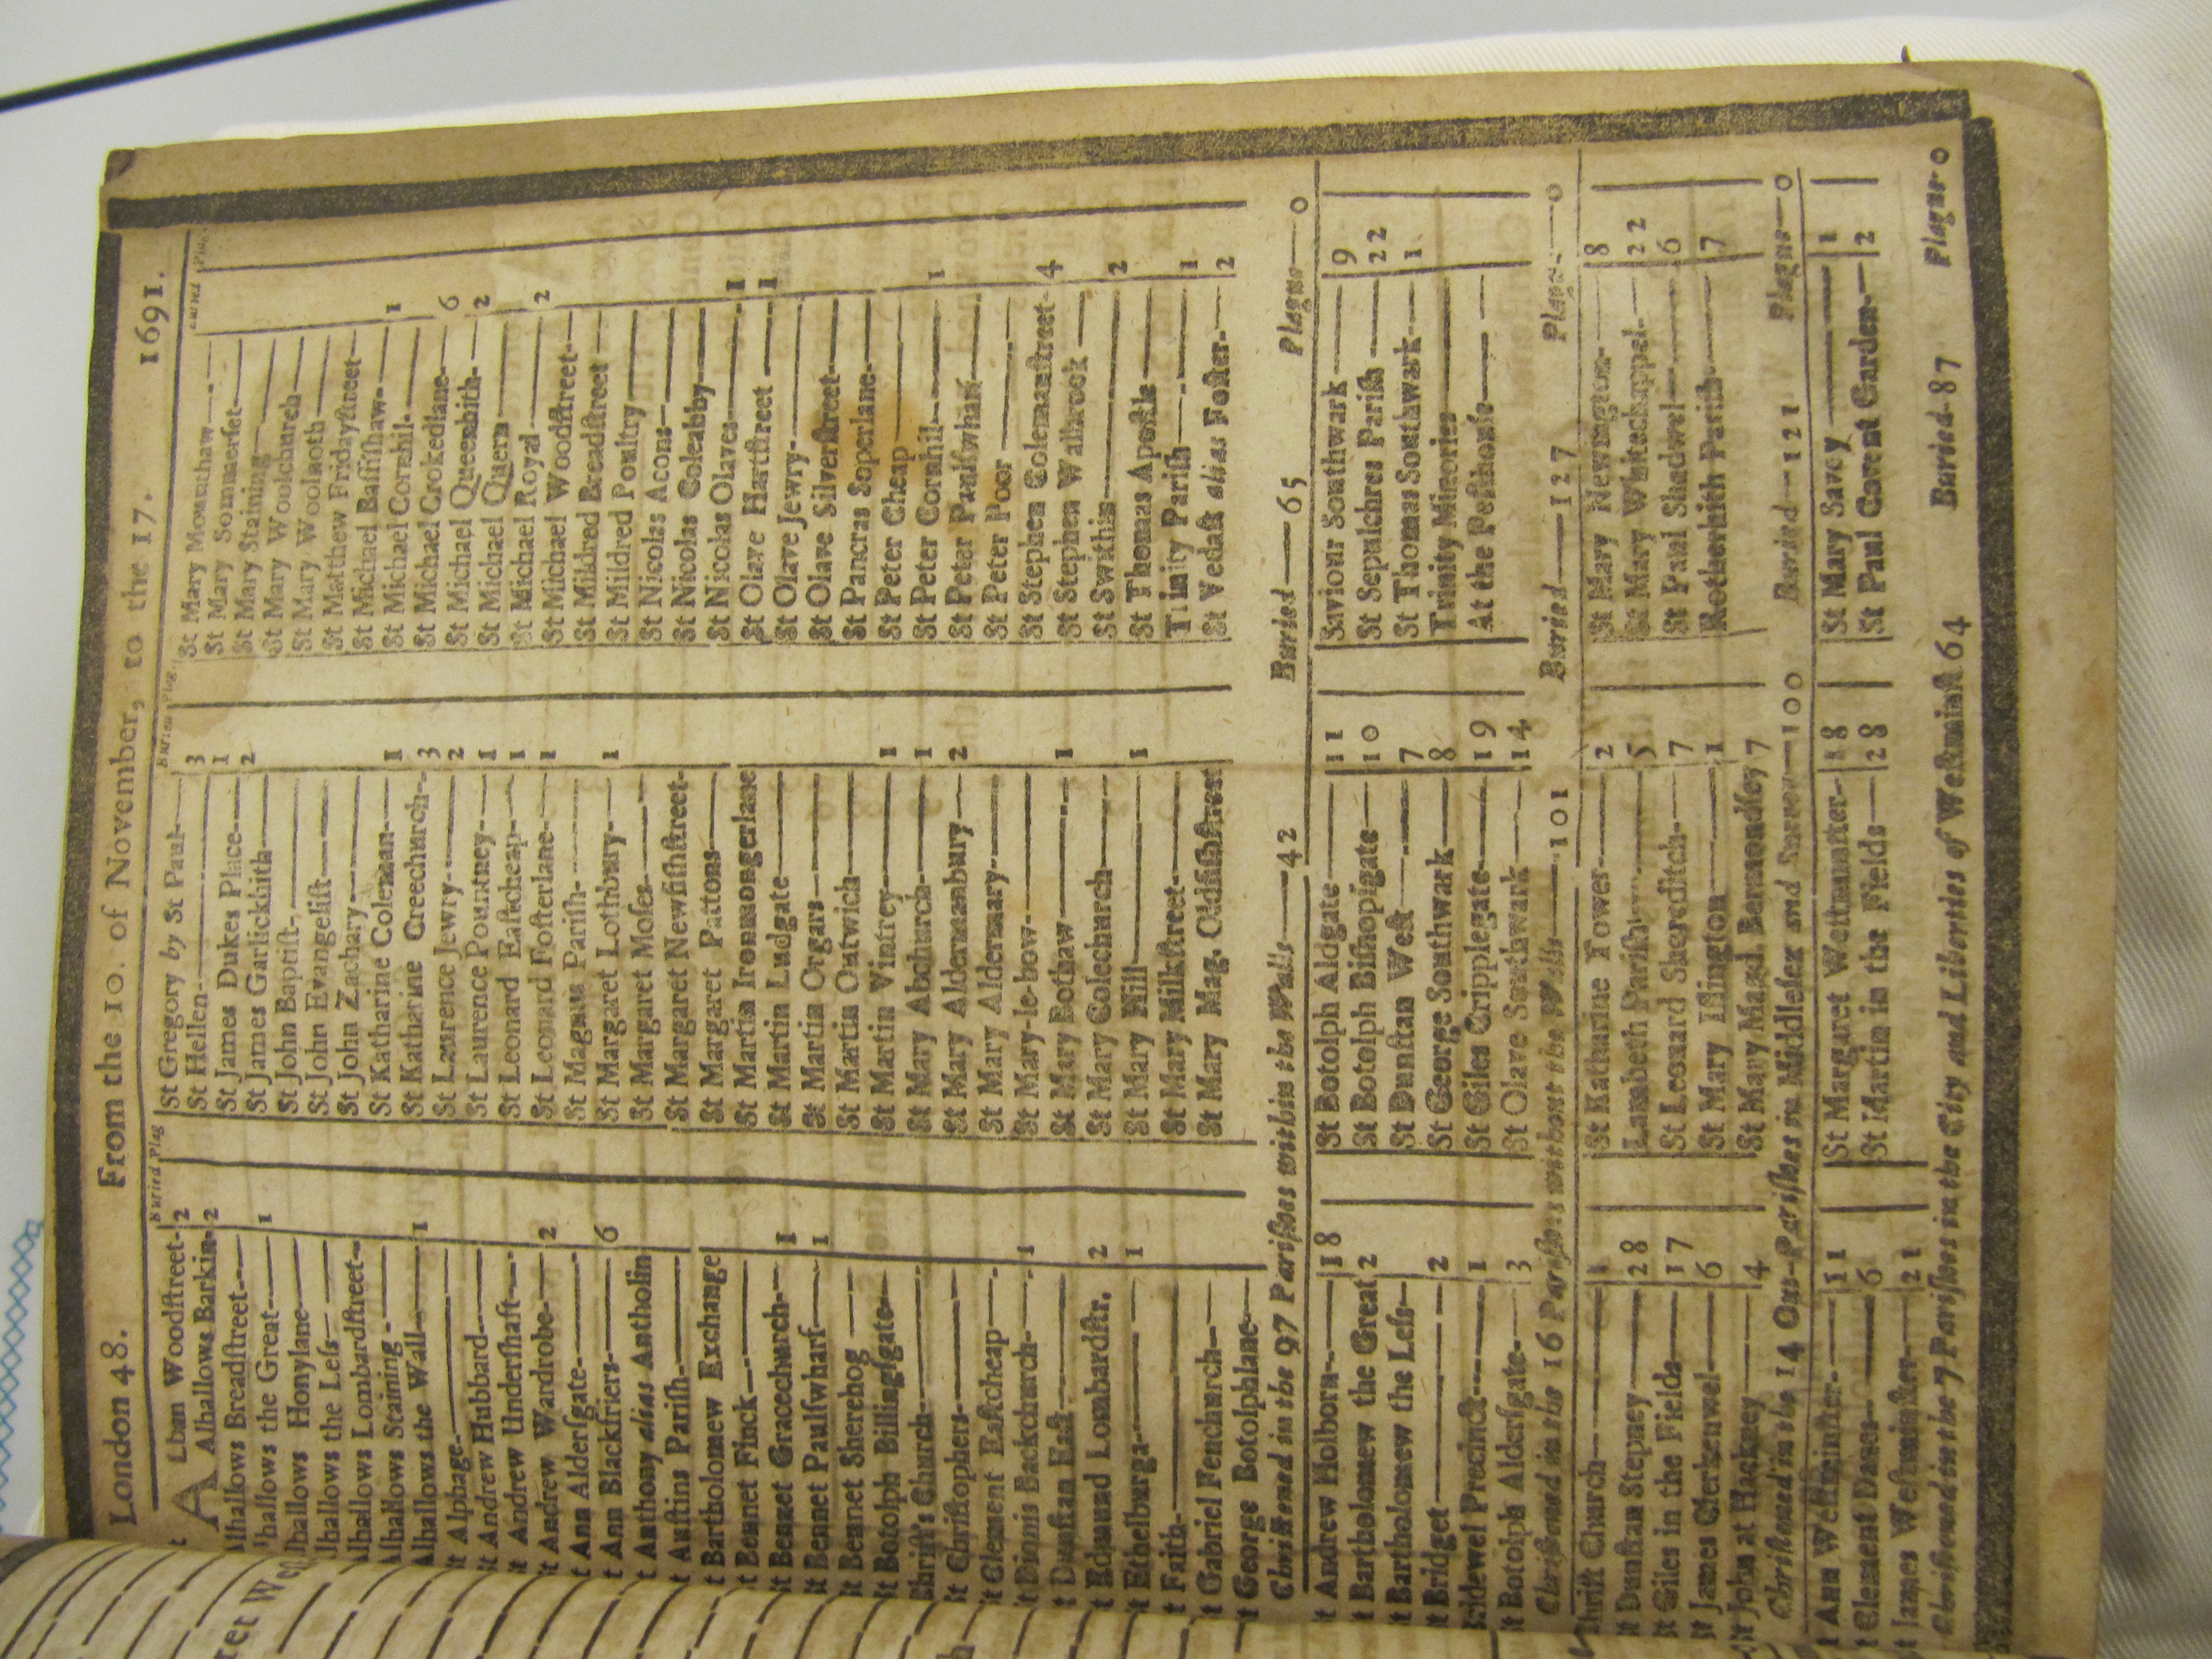 London 48. From the 10. of November, to the 17. 1691.
Buried Plag
ALban Woodſtreet-- 2
Alhallows Barkin- 2
lhallows Breadſtreet----
lhallows the Great---- 1
lhallows Honylane----
lhallows the Leſs----
lhallows Lombardſtreet--
lhallows Staining-----
Alhallows the Wall---- 1
t Alphage----
t Andrew Hubbard----
t Andrew Underſhaft---
t Andrew Wardrobe--- 2
t Ann Alderſgate-----
t Ann Blackfriers---- 6
t Anthony alias Antholin
t Auſtins Pariſh----
t Bartholomew Exchange
t Bennet Finck----
t Bennet Gracechurch--- 1
t Bennet Paulſwharf--- 1
t Bennet Sherehog ----
t Botolph Billingſgate--
Chriſt's Church----
t Chriſtophers----
t Clement Eaſtcheap----
t Dionis Backchurch---- 1
t Dunſtan Eaſt----
t Edmund Lombardſtr. 2
t Ethelburga---- 1
t Faith----
t Gabriel Fenchurch----
t George Botolphlane---
Buried Plag
St Gregory by St Paul--- 3
St Hellen---- 1
St James Dukes Place--- 2
St James Garlickhith----
St John Baptiſt----
St John Evangeliſt----
St John Zachary----
St Katharine Coleman--- 1
St Katharine Creechurch-- 3
St Laurence Jewry---- 2
St Laurence Pountney--- 1
St Leonard Eaſtcheap--- 1
St Leonard Foſterlane--- 1
St Magnus Pariſh----
St Margaret Lothbury--- 1
St Margaret Moſes----
St Margaret Newfiſhſtreet-
St Margaret Pattons----
St Martin Ironmongerlane
St Martin Ludgate----
St Martin Orgars----
St Martin Outwich----
St Martin Vintrey---- 1
St Mary Abchurch---- 1
St Mary Aldermanbury-- 2
St Mary Aldermary----
St Mary-le-bow----
St Mary Bothaw---- 1
St Mary Colechurch----
St Mary Hill---- 1
St Mary Milkſtreet----
St Mary Mag. Oldfiſhſtreet
St Mary Mounthaw----
St Mary Sommerſet----
St Mary Staining----
St Mary Woolchurch----
St Mary Woolnoth ----
St Matthew Fridayſtreet--
St Michael Baſſiſhaw--- 1
St Michael Cornhil----
St Michael Crokedlane-- 6
St Michael Queenhith-- 2
St Michael Quern----
St Michael Royal---- 2
St Michael Woodſtreet--
St Mildred Breadſtreet --
St Mildred Poultry----
St Nicolas Acons----
St Nicolas Coleabby----
St Nicolas Olaves---- 1
St Olave Hartſtreet ---- 1
St Olave Jewry----
St Olave Silverſtreet----
St Pancras Soperlane----
St Peter Cheap ----
St Peter Cornhil---- 1
St Peter Paulſwharf----
St Peter Poor ----
St Stephen Colemanſtreet- 4
St Stephen Walbrook ---
St Swithin---- 2
St Thomas Apoſtle ----
Trinity Pariſh---- 1
St Vedaſt alias Foſter--- 2
Chriſtned in the 97 Pariſhes within the Walls---42 Buried---65 Plague---0
t Andrew Holborn--- 18
t Bartholomew the Great 2
t Bartholomew the Leſs--
t Bridget ---- 2
ridewel Precinct---- 1
t Botolph Alderſgate--- 3
St Botolph Aldgate---- 11
St Botolph Biſhopſgate-- 10
St Dunſtan Weſt---- 7
St George Southwark--- 8
St Giles Cripplegate---- 19
St Olave Southwark ---- 14
Saviour Southwark ---- 9
St Sepulchres Pariſh ---- 22
St Thomas Southwark--- 1
Trinity Minories----
At the Peſthouſe---- --
Chriſtned in the 16 Pariſhes without the Walls---101 Buried---127 Plague---0
hriſt Church---- 1
t Dunſtan Stepney---- 28
t Giles in the Fields---- 17
t James Clerkenwel---- 6
t John at Hackney---- 4
St Katharine Tower---- 2
Lambeth Pariſh---- 5
St Leonard Shoreditch--- 7
St Mary Iſlington---- 1
St Mary Magd. Bermondſey 7
St Mary Newington---- 8
St Mary Whitechappel--- 22
St Paul Shadwel---- 6
Rotherhith Pariſh---- 7
Chriſtned in the 14 Out-Pariſhes in Middleſex and Surrey---100 Buried---121 Plague---0
t Ann Weſtminſter---- 11
t Clement Danes---- 6
t James Weſtminſter---- 21
St Margaret Weſtminſter- 18
St Martin in the Fields--- 28
St Mary Savoy ---- 1
St Paul Covent Garden--- 2
Chriſtned in the 7 Pariſhes in the City and Liberties of Weſtminſt 64 Buried-87 Plague 0